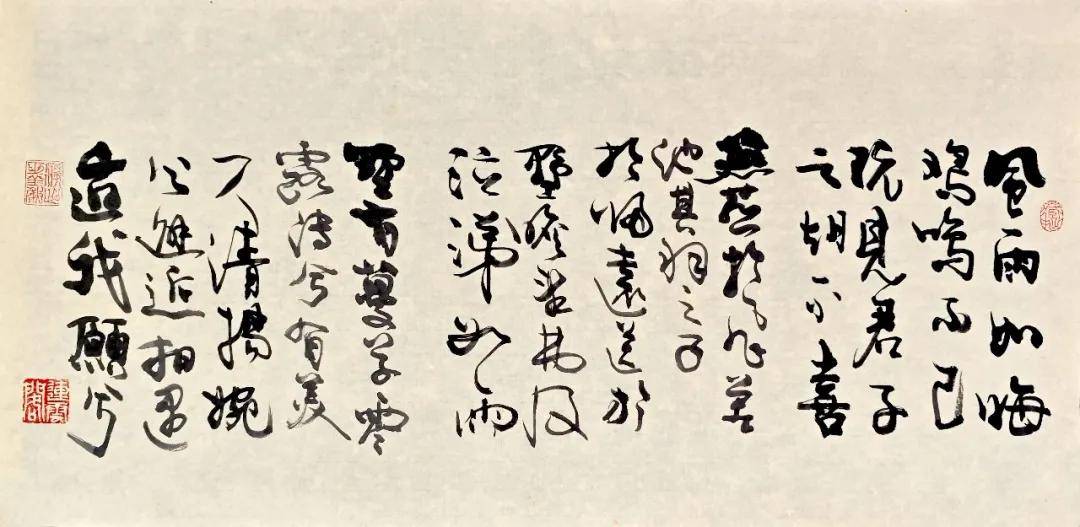 風雨如晦
鷄鳴不已
既見君子
云胡不喜
燕燕於飛差
池其羽之子
於歸遠送於
野瞻望弗及
泣涕如雨
野有蔓草零
露漙兮有美
一人清揚婉
兮邂逅相遇
適我願兮
連雲閣